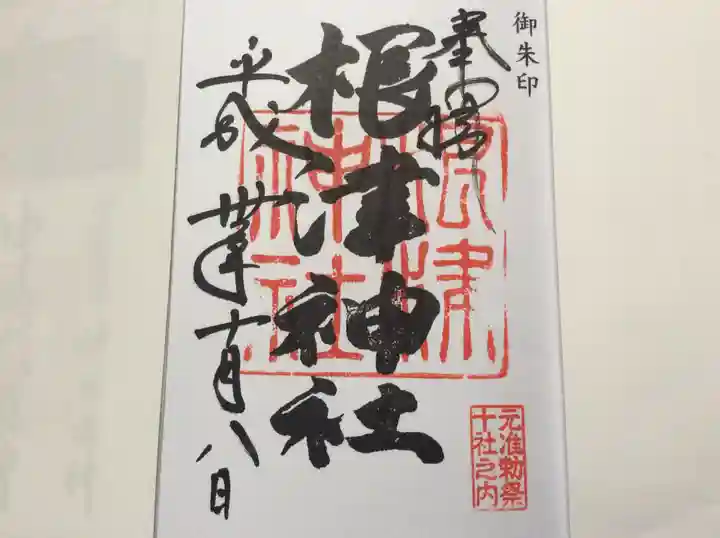 御朱印
奉拝
根津神社
平成卅年十月八日
根津
神社
元准勅祭
十社之内